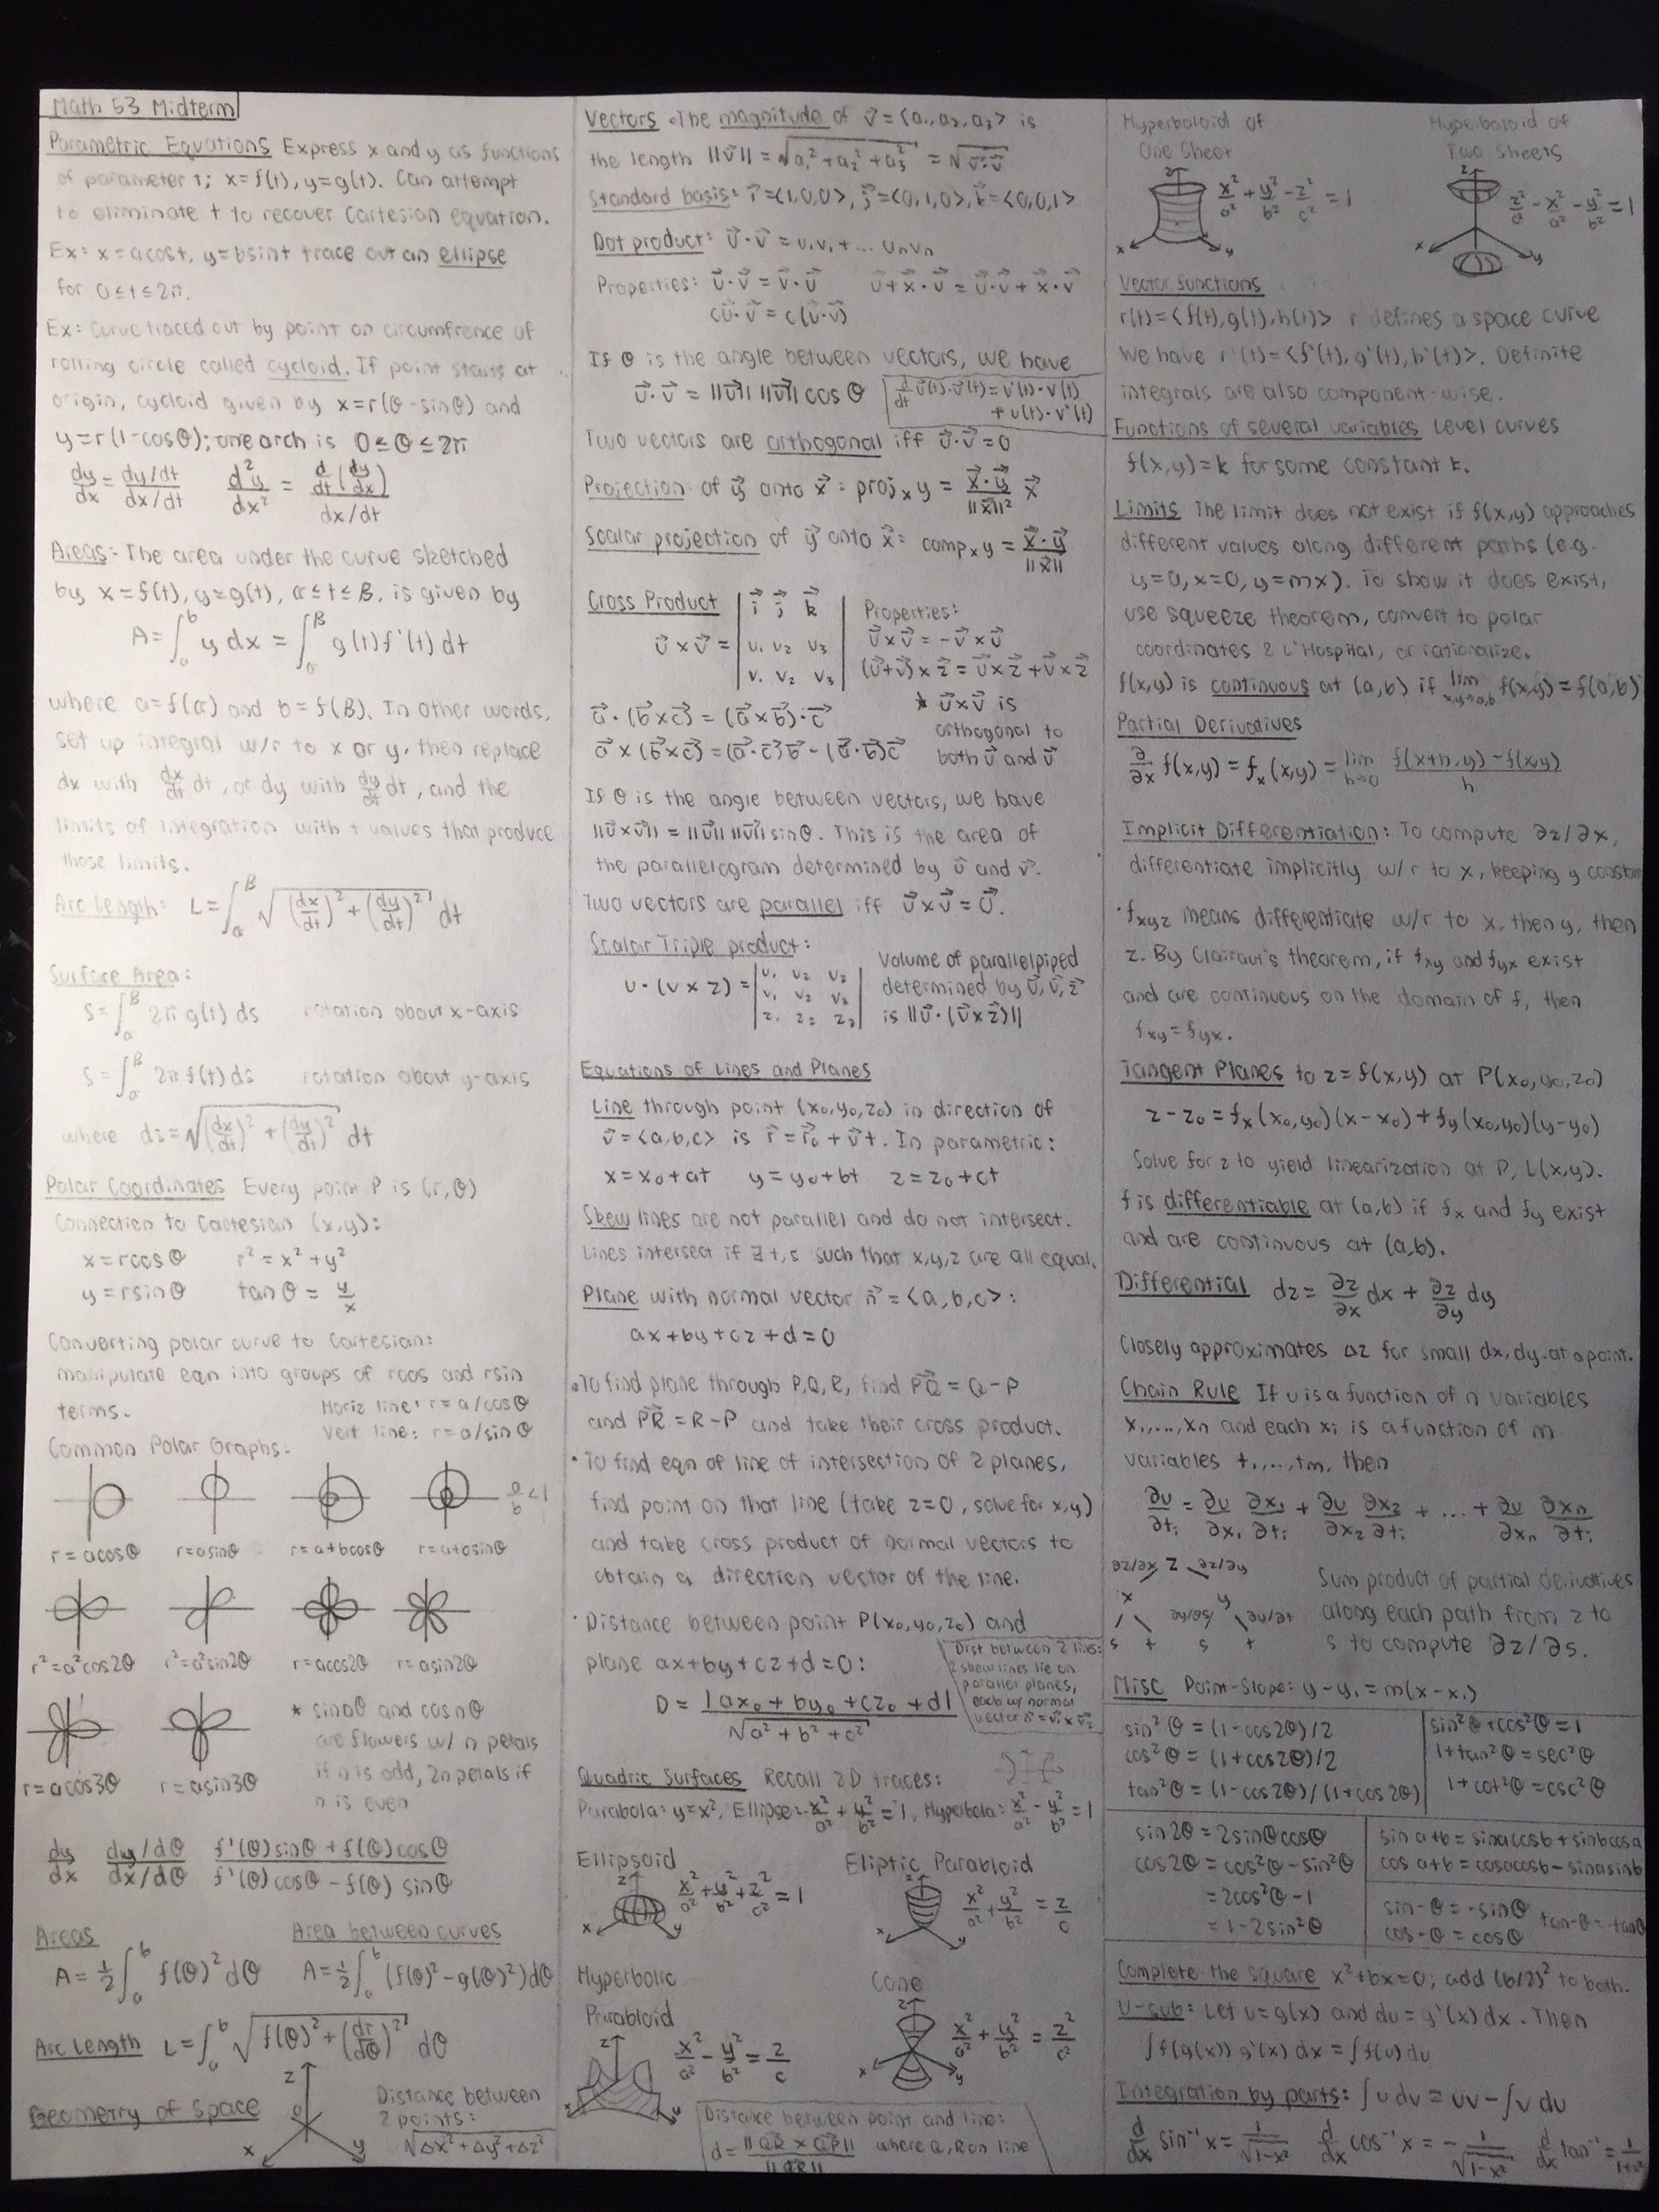 Math 53 Midterm
Parametric Equations Express x and y as functions
of parameter t; x=f(t), y=g(t). Can attempt
to eliminate t to recover Cartesian equation.
Ex: x=acost, y=bsint trace out an ellipse
for 0≤t≤2π.
Ex: Curve traced out by point on circumfrence of
rolling circle called cycloid. If point starts at
origin, cycloid given by x=r(θ-sinθ) and
y=r(1-cosθ); one arch is 0≤θ≤2π
dy/dx = (dy/dt)/(dx/dt) d²y/dx² = (d/dt(dy/dx))/(dx/dt)
Areas: The area under the curve sketched
by x=f(t), y=g(t), α≤t≤β, is given by
A=∫_a^b y dx = ∫_α^β g(t)f'(t)dt
where a=f(α) and b=f(β). In other words,
set up integral w/r to x or y, then replace
dx with dx/dt dt, or dy with dy/dt dt, and the
limits of integration with t values that produce
those limits.
Arc Length: L=∫_α^β √((dx/dt)²+(dy/dt)²) dt
Surface Area:
S=∫_α^β 2π g(t) ds rotation about x-axis
S=∫_α^β 2π f(t) ds rotation about y-axis
where ds=√((dx/dt)²+(dy/dt)²) dt
Polar Coordinates Every point P is (r,θ)
Connection to Cartesian (x,y):
x=rcosθ r²=x²+y²
y=rsinθ tanθ=y/x
Converting polar curve to Cartesian:
manipulate eqn into groups of rcos and rsin
terms. Horiz line: r=a/cosθ
Vert line: r=a/sinθ
Common Polar Graphs:
a/b<1
r=acosθ r=asinθ r=a+bcosθ r=a+bsinθ
r²=a²cos2θ r²=a²sin2θ r=acos2θ r=asin2θ
* sinnθ and cosnθ
are flowers w/ n petals
if n is odd, 2n petals if
n is even
r=acos3θ r=asin3θ
dy/dx (dy/dθ)/(dx/dθ) (f'(θ)sinθ+f(θ)cosθ)/(f'(θ)cosθ-f(θ)sinθ)
Areas Area between curves
A=½∫_a^b f(θ)²dθ A=½∫_a^b (f(θ)²-g(θ)²)dθ
Arc Length L=∫_a^b √(f(θ)²+(dr/dθ)²) dθ
Geometry of Space z 0 x y
Distance between
2 points:
√(Δx²+Δy²+Δz²)
Vectors •The magnitude of v⃗=<a₁,a₂,a₃> is
the length ||v⃗||=√(a₁²+a₂²+a₃²)=√(v⃗·v⃗)
Standard basis: i⃗=<1,0,0>, j⃗=<0,1,0>, k⃗=<0,0,1>
Dot product: u⃗·v⃗=u₁v₁+...uₙvₙ
Properties: u⃗·v⃗=v⃗·u⃗ u⃗+x⃗·v⃗=u⃗·v⃗+x⃗·v⃗
cu⃗·v⃗=c(u⃗·v⃗)
If θ is the angle between vectors, we have
u⃗·v⃗=||u⃗|| ||v⃗||cosθ
d/dt u⃗(t)·v⃗(t)=u'(t)·v(t)
+u(t)·v'(t)
Two vectors are orthogonal iff u⃗·v⃗=0
Projection of y⃗ onto x⃗: projₓy=(x⃗·y⃗)/||x⃗||² x⃗
Scalar projection of y⃗ onto x⃗: compₓy=(x⃗·y⃗)/||x⃗||
Cross Product
u⃗×v⃗= |i⃗ j⃗ k⃗|
|u₁ u₂ u₃|
|v₁ v₂ v₃|
Properties:
u⃗×v⃗=-v⃗×u⃗
(u⃗+v⃗)×z⃗=u⃗×z⃗+v⃗×z⃗
* u⃗×v⃗ is
orthogonal to
both u⃗ and v⃗
a⃗·(b⃗×c⃗)=(a⃗×b⃗)·c⃗
a⃗×(b⃗×c⃗)=(a⃗·c⃗)b⃗-(a⃗·b⃗)c⃗
If θ is the angle between vectors, we have
||u⃗×v⃗||=||u⃗|| ||v⃗||sinθ. This is the area of
the parallelogram determined by u⃗ and v⃗.
Two vectors are parallel iff u⃗×v⃗=0⃗.
Scalar Triple product:
u·(v×z)= |u₁ u₂ u₃|
|v₁ v₂ v₃|
|z₁ z₂ z₃|
Volume of parallelpiped
determined by u⃗,v⃗,z⃗
is ||u⃗·(v⃗×z⃗)||
Equations of Lines and Planes
Line through point (x₀,y₀,z₀) in direction of
v⃗=<a,b,c> is r⃗=r⃗₀+v⃗t. In parametric:
x=x₀+at y=y₀+bt z=z₀+ct
Skew lines are not parallel and do not intersect.
Lines intersect if ∃t,s such that x,y,z are all equal.
Plane with normal vector n⃗=<a,b,c>:
ax+by+cz+d=0
•To find plane through P,Q,R, find PQ⃗=Q-P
and PR⃗=R-P and take their cross product.
•To find eqn of line of intersection of 2 planes,
find point on that line (take z=0, solve for x,y)
and take cross product of normal vectors to
obtain a direction vector of the line.
•Distance between point P(x₀,y₀,z₀) and
plane ax+by+cz+d=0:
D=|ax₀+by₀+cz₀+d|/√(a²+b²+c²)
Dist between 2 lines:
2 skew lines lie on
parallel planes,
each w/ normal
vector n⃗=v⃗₁×v⃗₂
Quadric Surfaces Recall 2D traces:
Parabola: y=x², Ellipse: x²/a²+y²/b²=1, Hyperbola: x²/a²-y²/b²=1
Ellipsoid Eliptic Parabloid
z x y x²/a²+y²/b²+z²/c²=1 x²/a²+y²/b²=z/c
Hyperbolic Cone
Parabloid
z x y x²/a²-y²/b²=z/c z x y x²/a²+y²/b²=z²/c²
Distance between point and line:
d=||QR⃗×QP⃗||/||QR⃗|| where Q,R on line
Hyperbaloid of Hyperbaloid of
One Sheet Two Sheets
z x y x²/a²+y²/b²-z²/c²=1 z x y z²/c²-x²/a²-y²/b²=1
Vector functions
r(t)=<f(t),g(t),h(t)> r defines a space curve
We have r'(t)=<f'(t),g'(t),h'(t)>. Definite
integrals are also component-wise.
Functions of several variables Level curves
f(x,y)=k for some constant k.
Limits The limit does not exist if f(x,y) approaches
different values along different paths (e.g.
y=0, x=0, y=mx). To show it does exist,
use squeeze theorem, convert to polar
coordinates & L'Hospital, or rationalize.
f(x,y) is continuous at (a,b) if lim x,y→a,b f(x,y)=f(a,b)
Partial Derivatives
∂/∂x f(x,y)=fₓ(x,y)=lim h→0 (f(x+h,y)-f(x,y))/h
Implicit Differentiation: To compute ∂z/∂x,
differentiate implicitly w/r to x, keeping y constant
•f_xyz means differentiate w/r to x, then y, then
z. By Clairaut's theorem, if f_xy and f_yx exist
and are continuous on the domain of f, then
f_xy=f_yx.
Tangent Planes to z=f(x,y) at P(x₀,y₀,z₀)
z-z₀=fₓ(x₀,y₀)(x-x₀)+f_y(x₀,y₀)(y-y₀)
Solve for z to yield linearization at P, L(x,y).
f is differentiable at (a,b) if fₓ and f_y exist
and are continuous at (a,b).
Differential dz=∂z/∂x dx+∂z/∂y dy
Closely approximates Δz for small dx,dy at a point.
Chain Rule If u is a function of n variables
x₁,...,xₙ and each xᵢ is a function of m
variables t₁,...,tₘ, then
∂u/∂tᵢ=∂u/∂x₁ ∂x₁/∂tᵢ+∂u/∂x₂ ∂x₂/∂tᵢ+...+∂u/∂xₙ ∂xₙ/∂tᵢ
∂z/∂x z ∂z/∂y
x y
∂y/∂s ∂y/∂t
s t s t
Sum product of partial derivatives
along each path from z to
s to compute ∂z/∂s.
Misc Point-Slope: y-y₁=m(x-x₁)
sin²θ=(1-cos2θ)/2
cos²θ=(1+cos2θ)/2
tan²θ=(1-cos2θ)/(1+cos2θ)
sin²θ+cos²θ=1
1+tan²θ=sec²θ
1+cot²θ=csc²θ
sin2θ=2sinθcosθ
cos2θ=cos²θ-sin²θ
=2cos²θ-1
=1-2sin²θ
sin a+b=sinacosb+sinbcosa
cos a+b=cosacosb-sinasinb
sin-θ=-sinθ
cos-θ=cosθ
tan-θ=-tanθ
Complete the square x²+bx=0; add (b/2)² to both.
U-sub: Let u=g(x) and du=g'(x)dx. Then
∫f(g(x))g'(x)dx=∫f(u)du
Integration by parts: ∫u dv=uv-∫v du
d/dx sin⁻¹x=1/√(1-x²) d/dx cos⁻¹x=-1/√(1-x²) d/dx tan⁻¹=1/(1+x²)